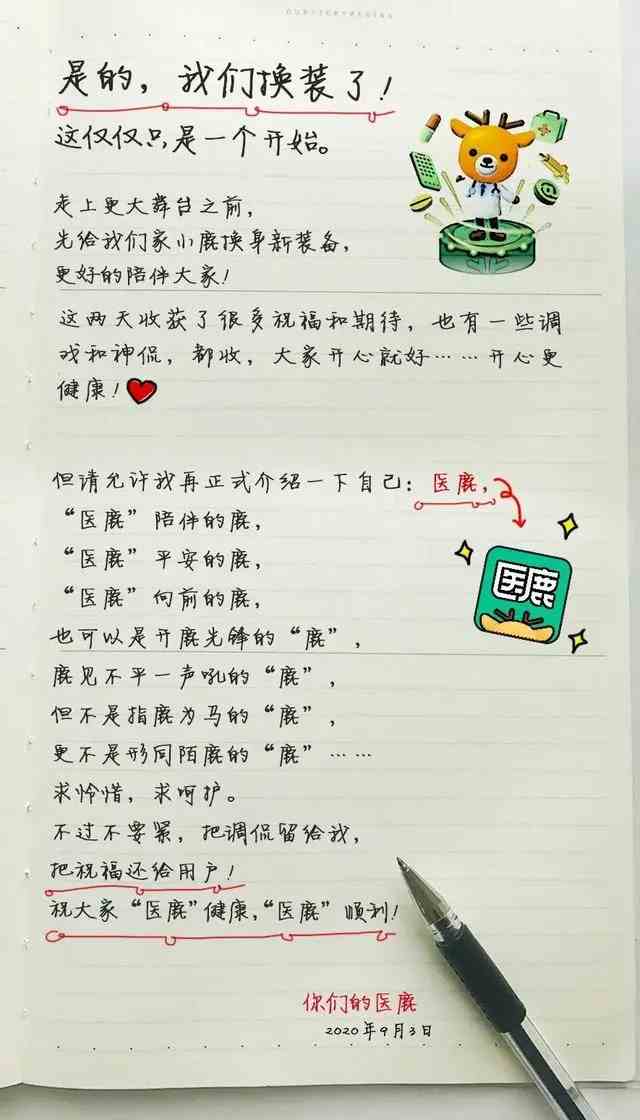 是的，我们换装了！
这仅仅只是一个开始。
走上更大舞台之前，
先给我们家小鹿换身新装备，
更好的陪伴大家！
这两天收获了很多祝福和期待，也有一些调
戏和神侃，都收，大家开心就好……开心更
健康！
但请允许我再正式介绍一下自己：医鹿，
“医鹿”陪伴的鹿，
“医鹿”平安的鹿，
医鹿
“医鹿”向前的鹿，
也可以是开鹿先锋的“鹿”，
鹿见不平一声吼的“鹿”，
但不是指鹿为马的“鹿”，
更不是形同陌鹿的“鹿”……
求怜惜，求呵护。
不过不要紧，把调侃留给我，
把祝福还给用户！
祝大家“医鹿”健康，“医鹿”顺利！
你们的医鹿
2020年9月3日